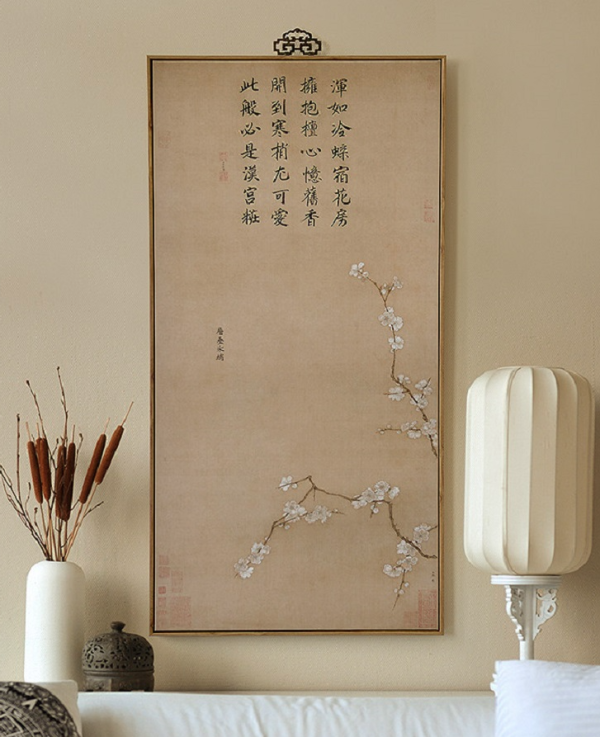 渾如冷蝶宿花房
擁抱檀心憶舊香
開到寒梢尤可愛
此般必是漢宮粧
層叠冰綃